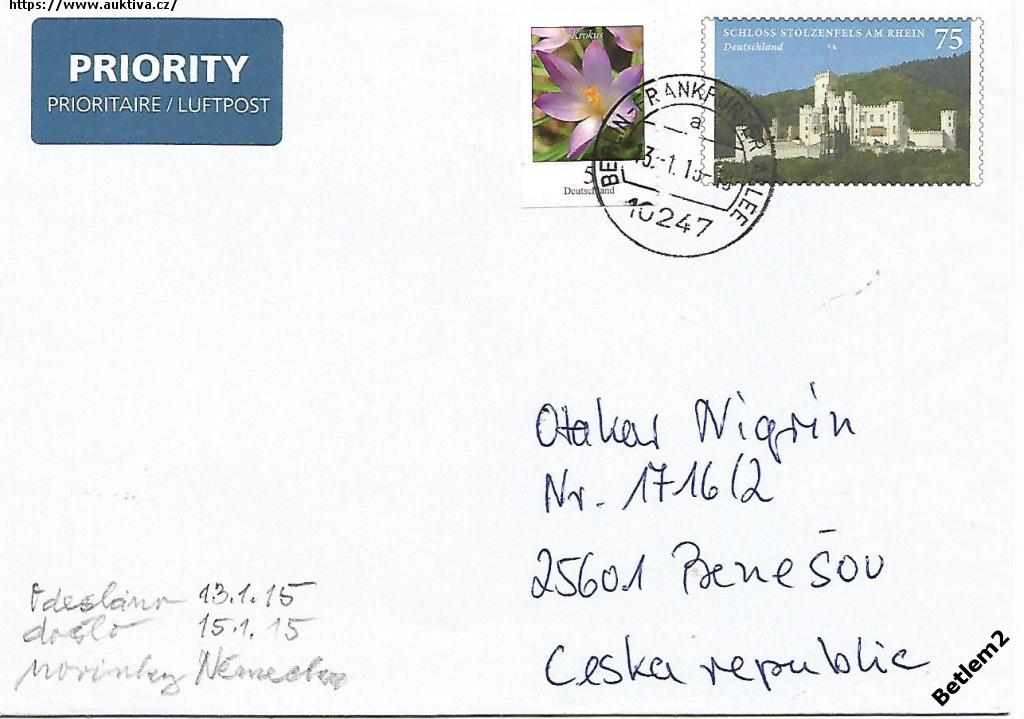 https://www.auktiva.cz/
PRIORITY
PRIORITAIRE / LUFTPOST
Krokus
5
Deutschland
SCHLOSS STOLZENFELS AM RHEIN 75
Deutschland
BERLIN-FRANKFURTER ALLEE
a
13.-1.15-18
10247
Otakar Nigrin
Nr. 1716/2
25601 Benešov
Ceska republic
Odesláno 13.1.15
došlo 15.1.15
novinky Německo
Betlem2